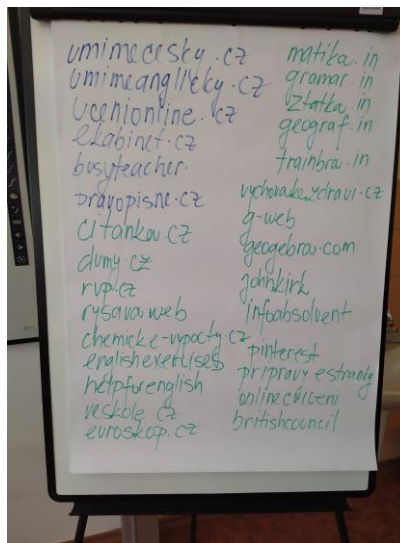 umimecesky.cz
umimeanglicky.cz
ucenionline.cz
ekabinet.cz
busyteacher.
pravopisne.cz
citanka.cz
dumy.cz
rvp.cz
rysava web
chemicke-vypocty.cz
englishexercises
helpforenglish
veskole.cz
euroskop.cz
matika.in
gramar.in
zlatka.in
geograf.in
trainbra.in
g-web
geogebra.com
johnkirk
infoabsolvent
pinterest
pripravy estranky
onlinecviceni
britishcouncil